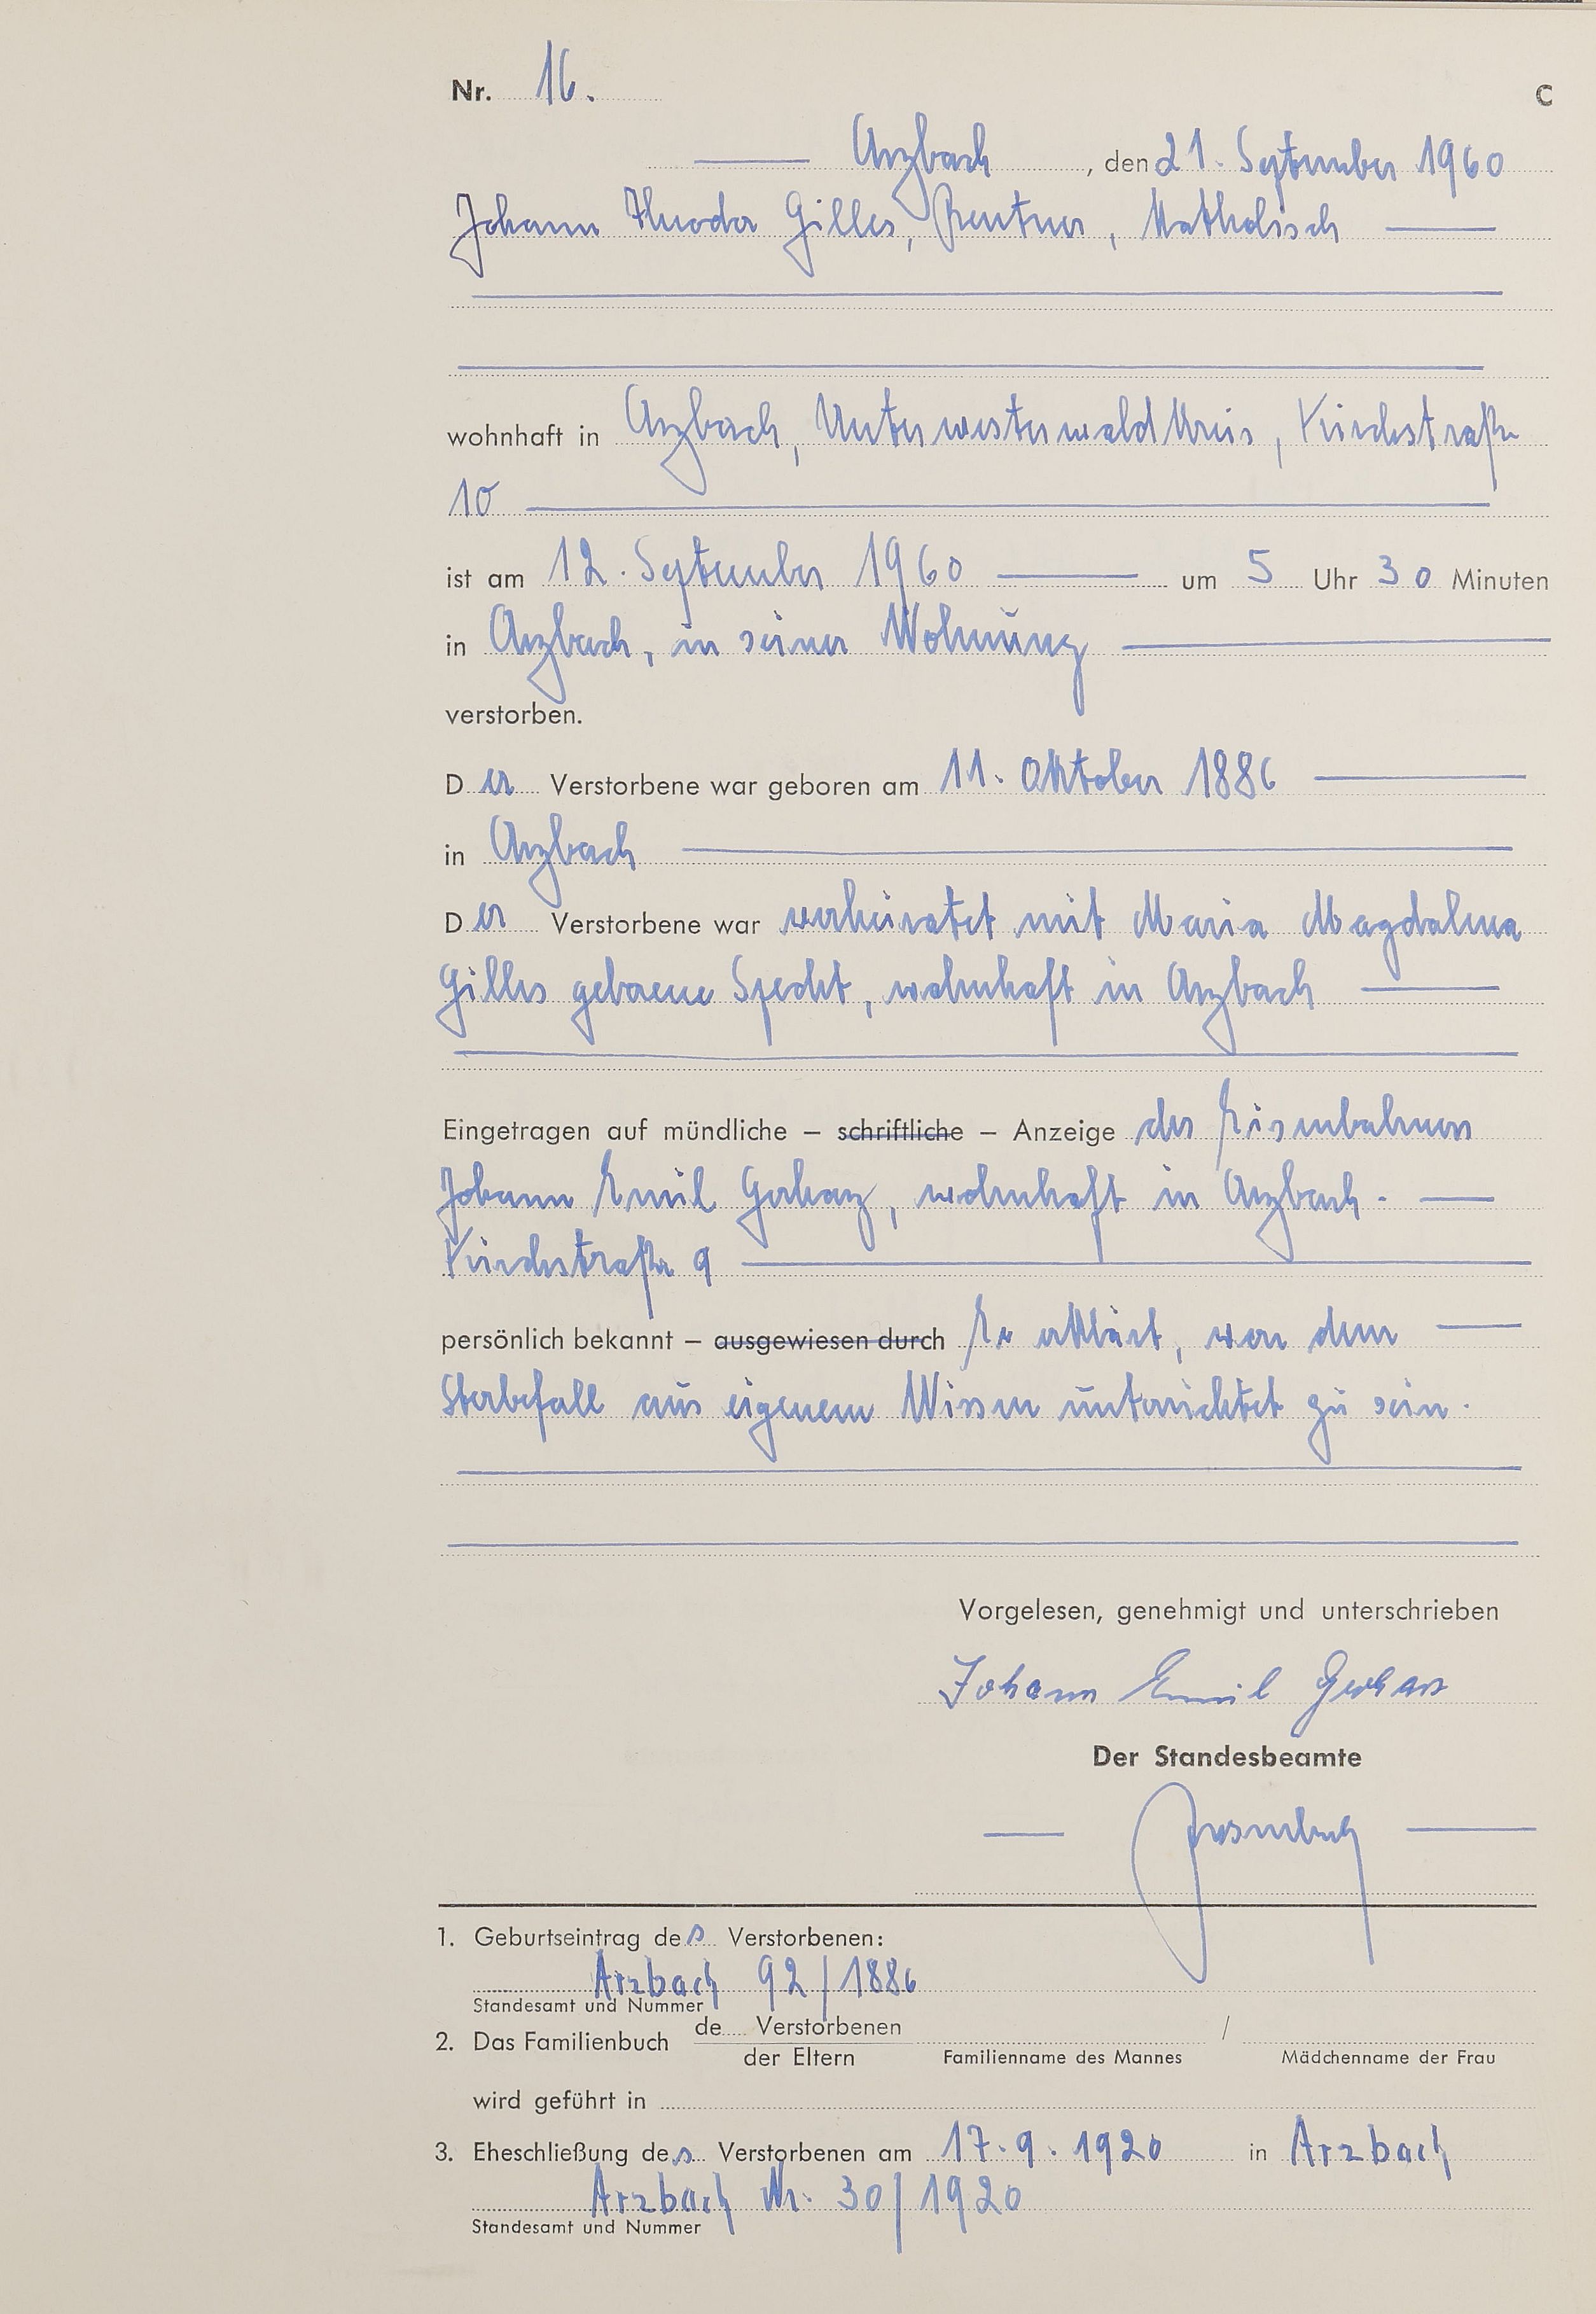 Nr. 16. C
Arzbach, den 21. September 1960
Johann Theodor Gilles, Rentner, katholisch
wohnhaft in Arzbach, Unterwesterwaldkreis, Kirchstraße
10
ist am 12. September 1960 um 5 Uhr 30 Minuten
in Arzbach, in seiner Wohnung
verstorben.
Der Verstorbene war geboren am 11. Oktober 1886
in Arzbach
Der Verstorbene war verheiratet mit Maria Magdalena
Gilles geborene Specht, wohnhaft in Arzbach
Eingetragen auf mündliche – schriftliche – Anzeige des Eisenbahners
Johann Emil Gerharz, wohnhaft in Arzbach.
Kirchstraße 9
persönlich bekannt – ausgewiesen durch Er erklärt, von dem
Sterbefall aus eigenem Wissen unterrichtet zu sein.
Vorgelesen, genehmigt und unterschrieben
Johann Emil Gerharz
Der Standesbeamte
1. Geburtseintrag des Verstorbenen:
Arzbach 92/1886
Standesamt und Nummer
2. Das Familienbuch de Verstorbenen /
der Eltern Familienname des Mannes Mädchenname der Frau
wird geführt in
3. Eheschließung des Verstorbenen am 17.9.1920 in Arzbach
Arzbach Nr. 30/1920
Standesamt und Nummer